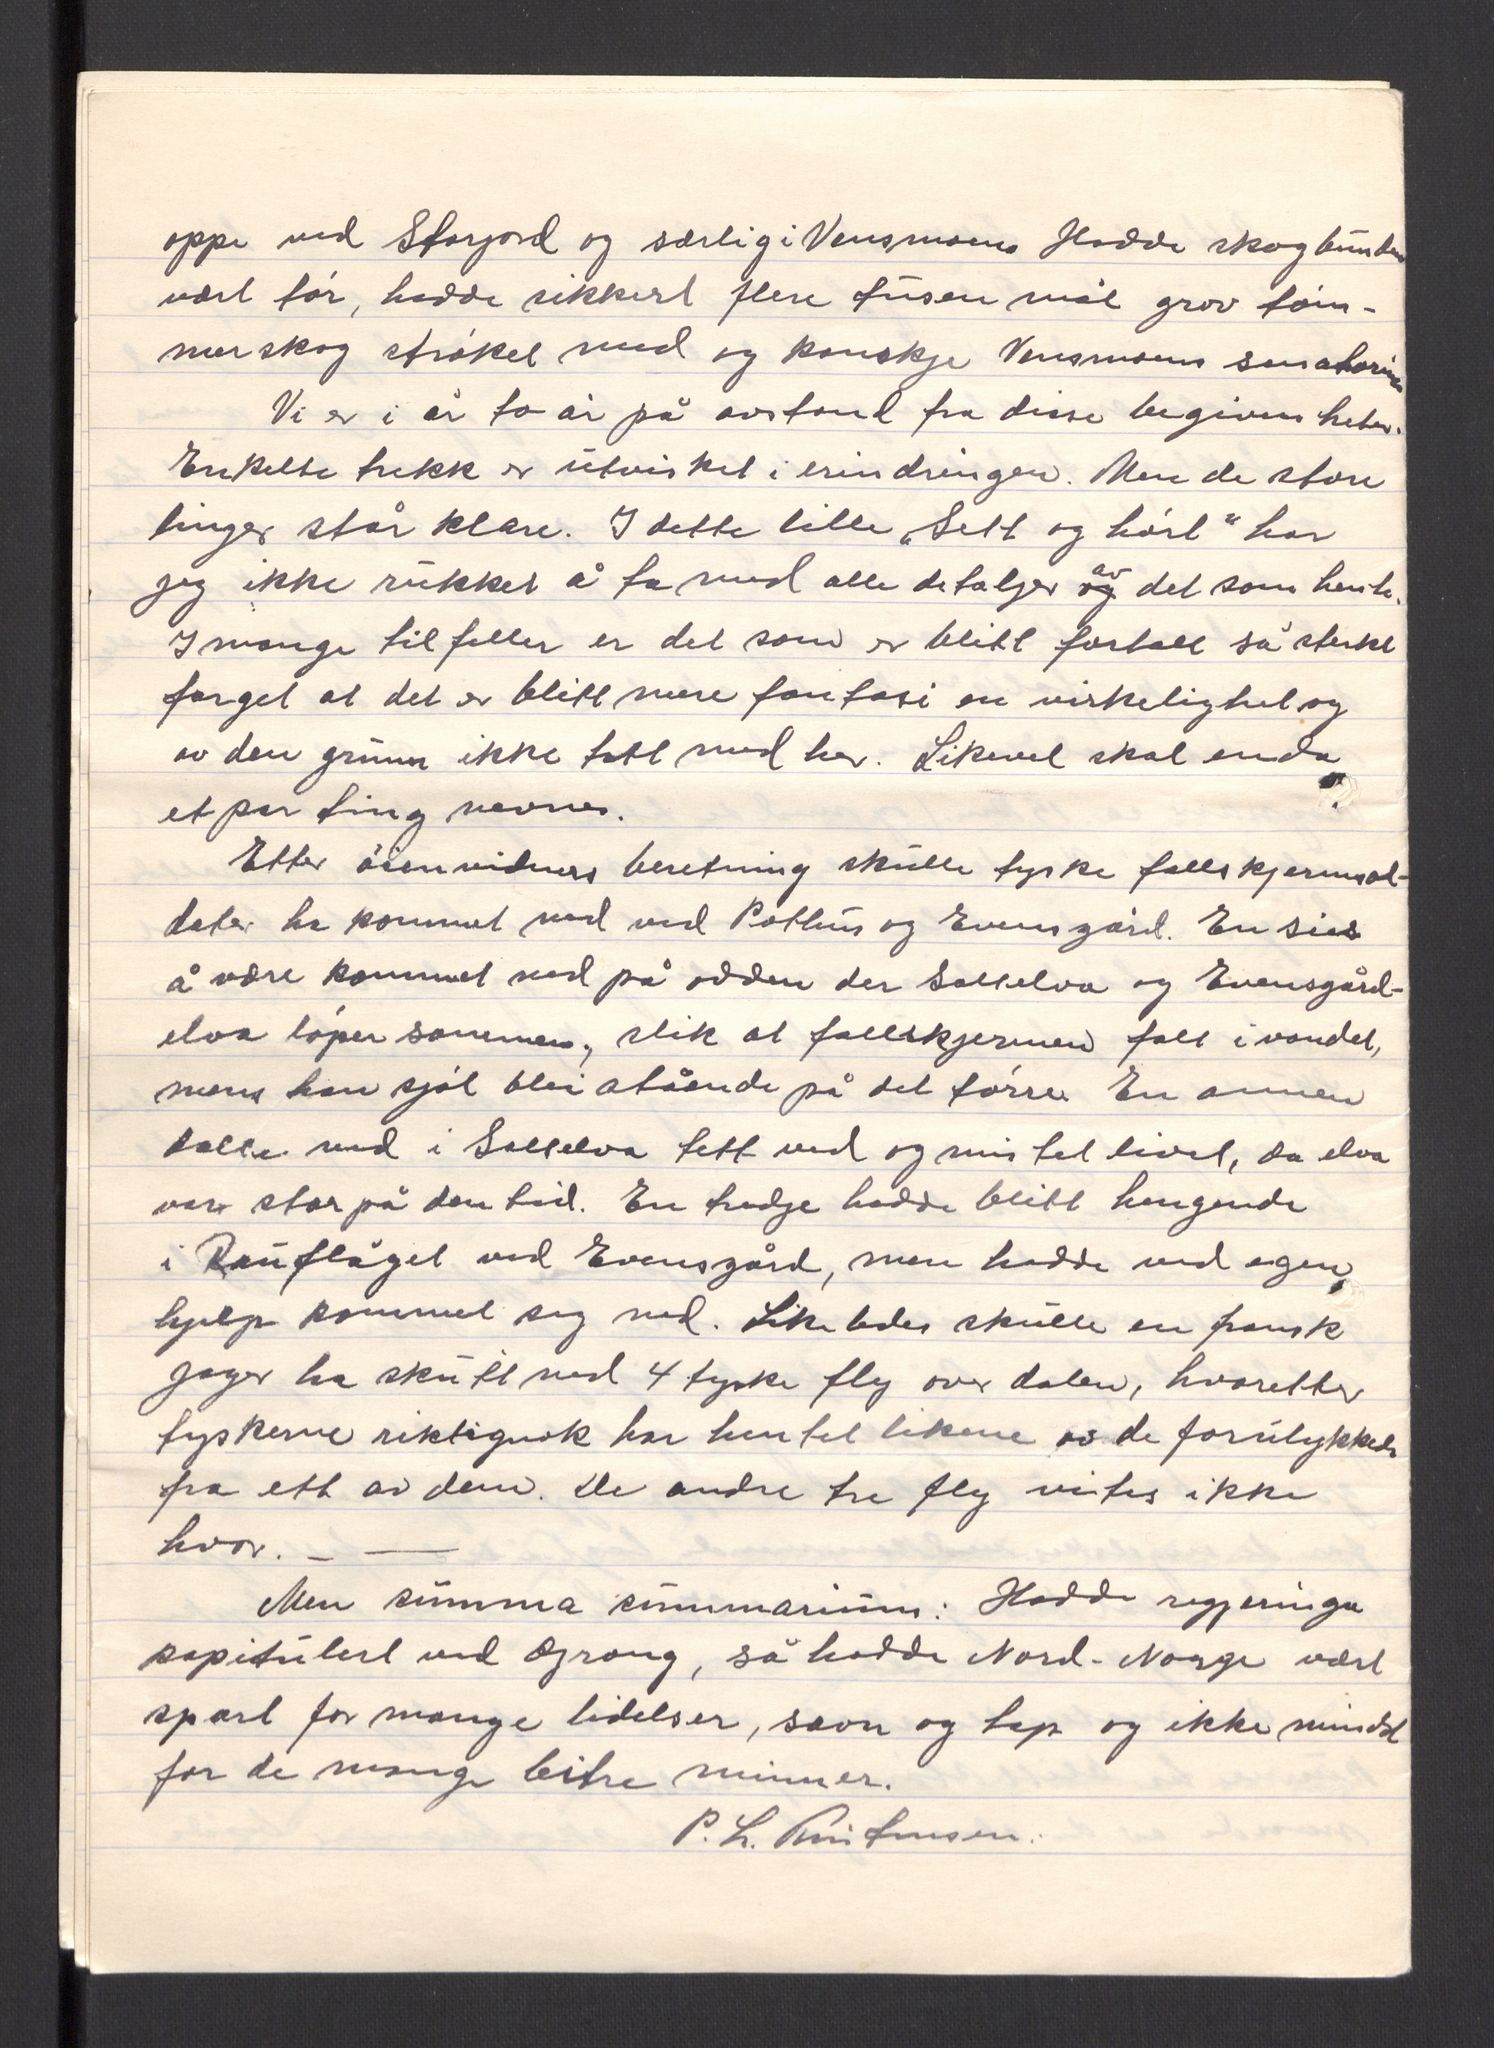 oppe ved Storjord og særlig i Vensmoen. Hadde skogbunden
vært tør, hadde sikkert flere tusen mål grov tøm-
merskog strøket med og kanskje Vensmoens sanatorium
Vi er i år to år på avstand fra disse begivenheter.
Enkelte trekk er utvisket i erindringen. Men de store
linjer står klare. I dette lille „Sett og hørt" har
jeg ikke rukket å ta med alle detaljer av det som hente.
I mange tilfeller er det som er blitt fortalt så sterkt
farget at det er blitt mere fantasi en virkelighet og
av den grunn ikke tatt med her. Likevel skal enda
et par ting nevnes.
Etter øienvidners beretning skulle tyske fallskjermsol-
dater ha kommet ned ved Pothus og Evensgård. En sies
å være kommet ned på odden der Saltelva og Evensgård-
elva løper sammen, slik at fallskjermen falt i vandet,
mens han sjøl blei stående på det tørre. En annen
dalte ned i Saltelva tett ved og mistet livet, da elva
var stor på den tid. En tredje hadde blitt hengende
i Rauflåget ved Evensgård, men hadde ved egen
hjelp kommet seg ned. Likeledes skulle en fransk
jager ha skutt ned 4 tyske fly over dalen, hvoretter
tyskerne riktignok har hentet likene av de forulykkede
fra ett av dem. De andre tre fly vites ikke
hvor. – —
Men summa summarium: Hadde regjeringa
kapitulert ved Grong, så hadde Nord-Norge vært
spart for mange lidelser, savn og tap og ikke minst
for de mange bitre minner.
P. L. Kristensen.